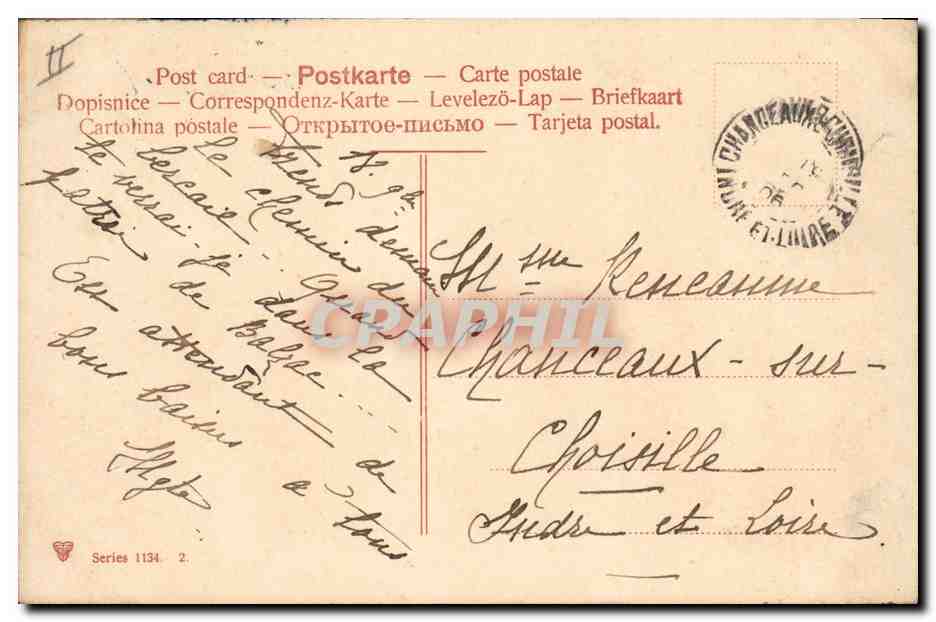 II
Post card — Postkarte — Carte postale
Dopisnice — Correspondenz-Karte — Levelező-Lap — Briefkaart
Cartolina postale — Открытое-письмо — Tarjeta postal.
CHANCEAUX-S-CHOISILLE
INDRE-ET-LOIRE
demain
le chemin du
bercail Quand
te verrai-je dans la
patrie de Balzac
En attendant de
bons baisers à tous
Mgte
Mme Renceanme
Chanceaux-sur-
Choisille
Indre et Loire.
CPAPHIL
Series 1134. 2.